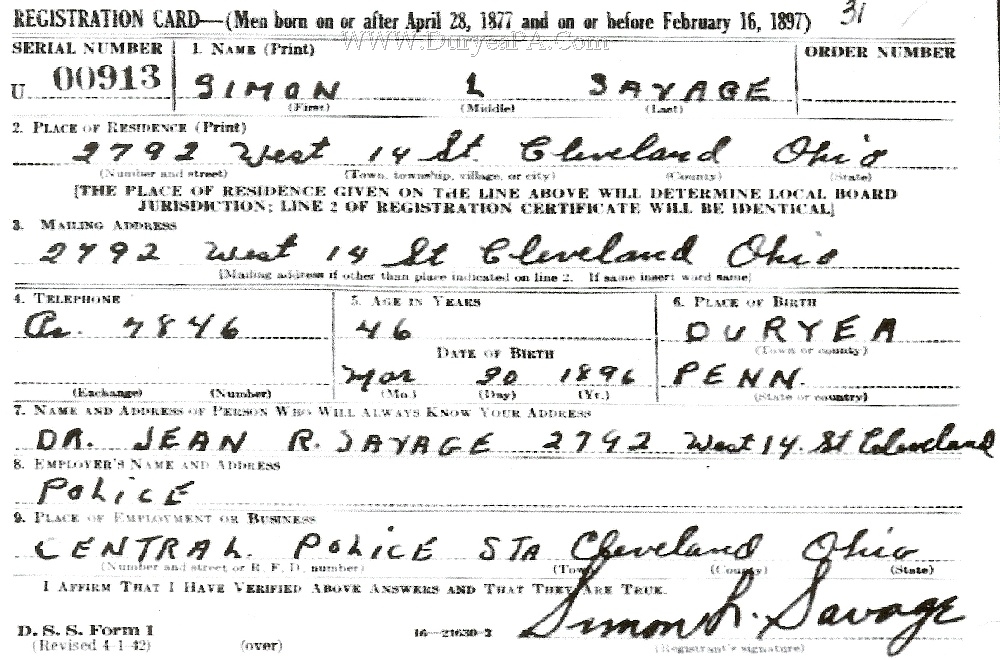 REGISTRATION CARD—(Men born on or after April 28, 1877 and on or before February 16, 1897) 31
www.DuryeaPA.Com
SERIAL NUMBER 1. NAME (Print) ORDER NUMBER
U 00913 SIMON L SAVAGE
(First) (Middle) (Last)
2. PLACE OF RESIDENCE (Print)
2792 West 14 St. Cleveland Ohio
(Number and street) (Town, township, village, or city) (County) (State)
[THE PLACE OF RESIDENCE GIVEN ON THE LINE ABOVE WILL DETERMINE LOCAL BOARD
JURISDICTION; LINE 2 OF REGISTRATION CERTIFICATE WILL BE IDENTICAL]
3. MAILING ADDRESS
2792 West 14 St Cleveland Ohio
[Mailing address if other than place indicated on line 2. If same insert word same]
4. TELEPHONE 5. AGE IN YEARS 6. PLACE OF BIRTH
7846 46 DURYEA
(Town or county)
DATE OF BIRTH
Mar 20 1896 PENN.
(Exchange) (Number) (Mo.) (Day) (Yr.) (State or country)
7. NAME AND ADDRESS OF PERSON WHO WILL ALWAYS KNOW YOUR ADDRESS
DR. JEAN R. SAVAGE 2792 West 14. St Cleveland
8. EMPLOYER'S NAME AND ADDRESS
POLICE
9. PLACE OF EMPLOYMENT OR BUSINESS
CENTRAL POLICE STA Cleveland Ohio
(Number and street or R. F. D. number) (Town) (County) (State)
I AFFIRM THAT I HAVE VERIFIED ABOVE ANSWERS AND THAT THEY ARE TRUE.
Simon L. Savage
D. S. S. Form 1 16—21630-2
(Revised 4-1-42) (over) (Registrant's signature)